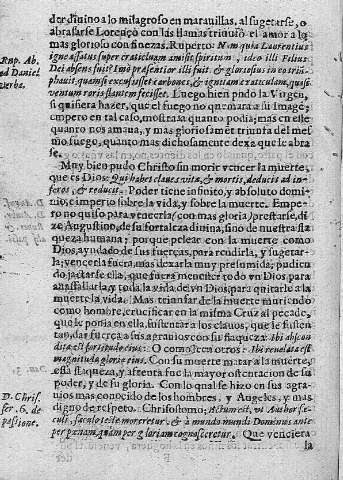 der diuino a lo milagroso en marauillas, al sugetarse, o
abrasarse Lorenço con las llamas triunfò el amor a lo
mas glorioso con finezas. Ruperto: Non quia Laurentius
igne assatus super craticulam amisit spiritum, ideo illi Filius
Dei absens fuit: Imò præsentior illi fuit & gloriosius in eo triun-
phauit, quam si excussisset carbones, & ignitam craticulam, quasi
ventum roris flantem fecisset. Luego bien pudo la Virgen,
si quisiera hazer, que el fuego no quemara a su Imagẽ;
empero en tal caso, mostrara quanto podia; mas en elle
quanto nos amaua, y mas gloriosamẽt triunfa del mes
mo fuego, quanto mas dichosamente dexa que le abra
se.
Muy bien pudo Christo sin morir vencer la muerte,
que es Dios: Qui habes claues vitæ, & mortis, deducis ad in-
feros, & reducis. Poder tiene infinito, y absoluto domi-
nio, e imperio sobre la vida, y sobre la muerte. Empe-
ro no quiso para vencerla (con mas gloria) prestarse, di-
ze Augustino, de su fortaleza diuina, sino de nuestra fla
queza humana; porque pelear con la muerte como
Dios, ayudado de sus fuerças, para rendirla, y sugetar-
la; vencerla fuera, mas dexarla muy presumida; pudien
do jactarse ella, que fuera menester todo vn Dios para
auassallarla, y toda la vida de vn Dios, para quitarle a la
muerte la vida. Mas triunfar de la muerte muriendo
como hombre, crucificar en la misma Cruz al pecado,
que le ponia en ella, sustentar a los clauos, que le susten
tan, dar fuerça a sus agrauios con su flaqueza: Ibi abscon
dita est fortitudo eius: O como leen otros: Ibi reuelata est
magnitudo gloriæ eius. Con su muerte matar a la muerte,
esta flaqueza, y afrenta fue la mayor ostentacion de su
poder, y de su gloria. Con lo qual se hizo en sus agra-
uios mas conocido de los hombres, y Angeles, y mas
digno de respeto. Christostomo: Actum est, vt Author sæ-
culi, sæculo teste moreretur, & à mundo mundi Dominus ante
per pœnam, quàm per gloriam cognosceretur. Que venciera
la
Rup. Ab.
ad Daniel
verba.
D. Chris.
ser. 6. de
passione.